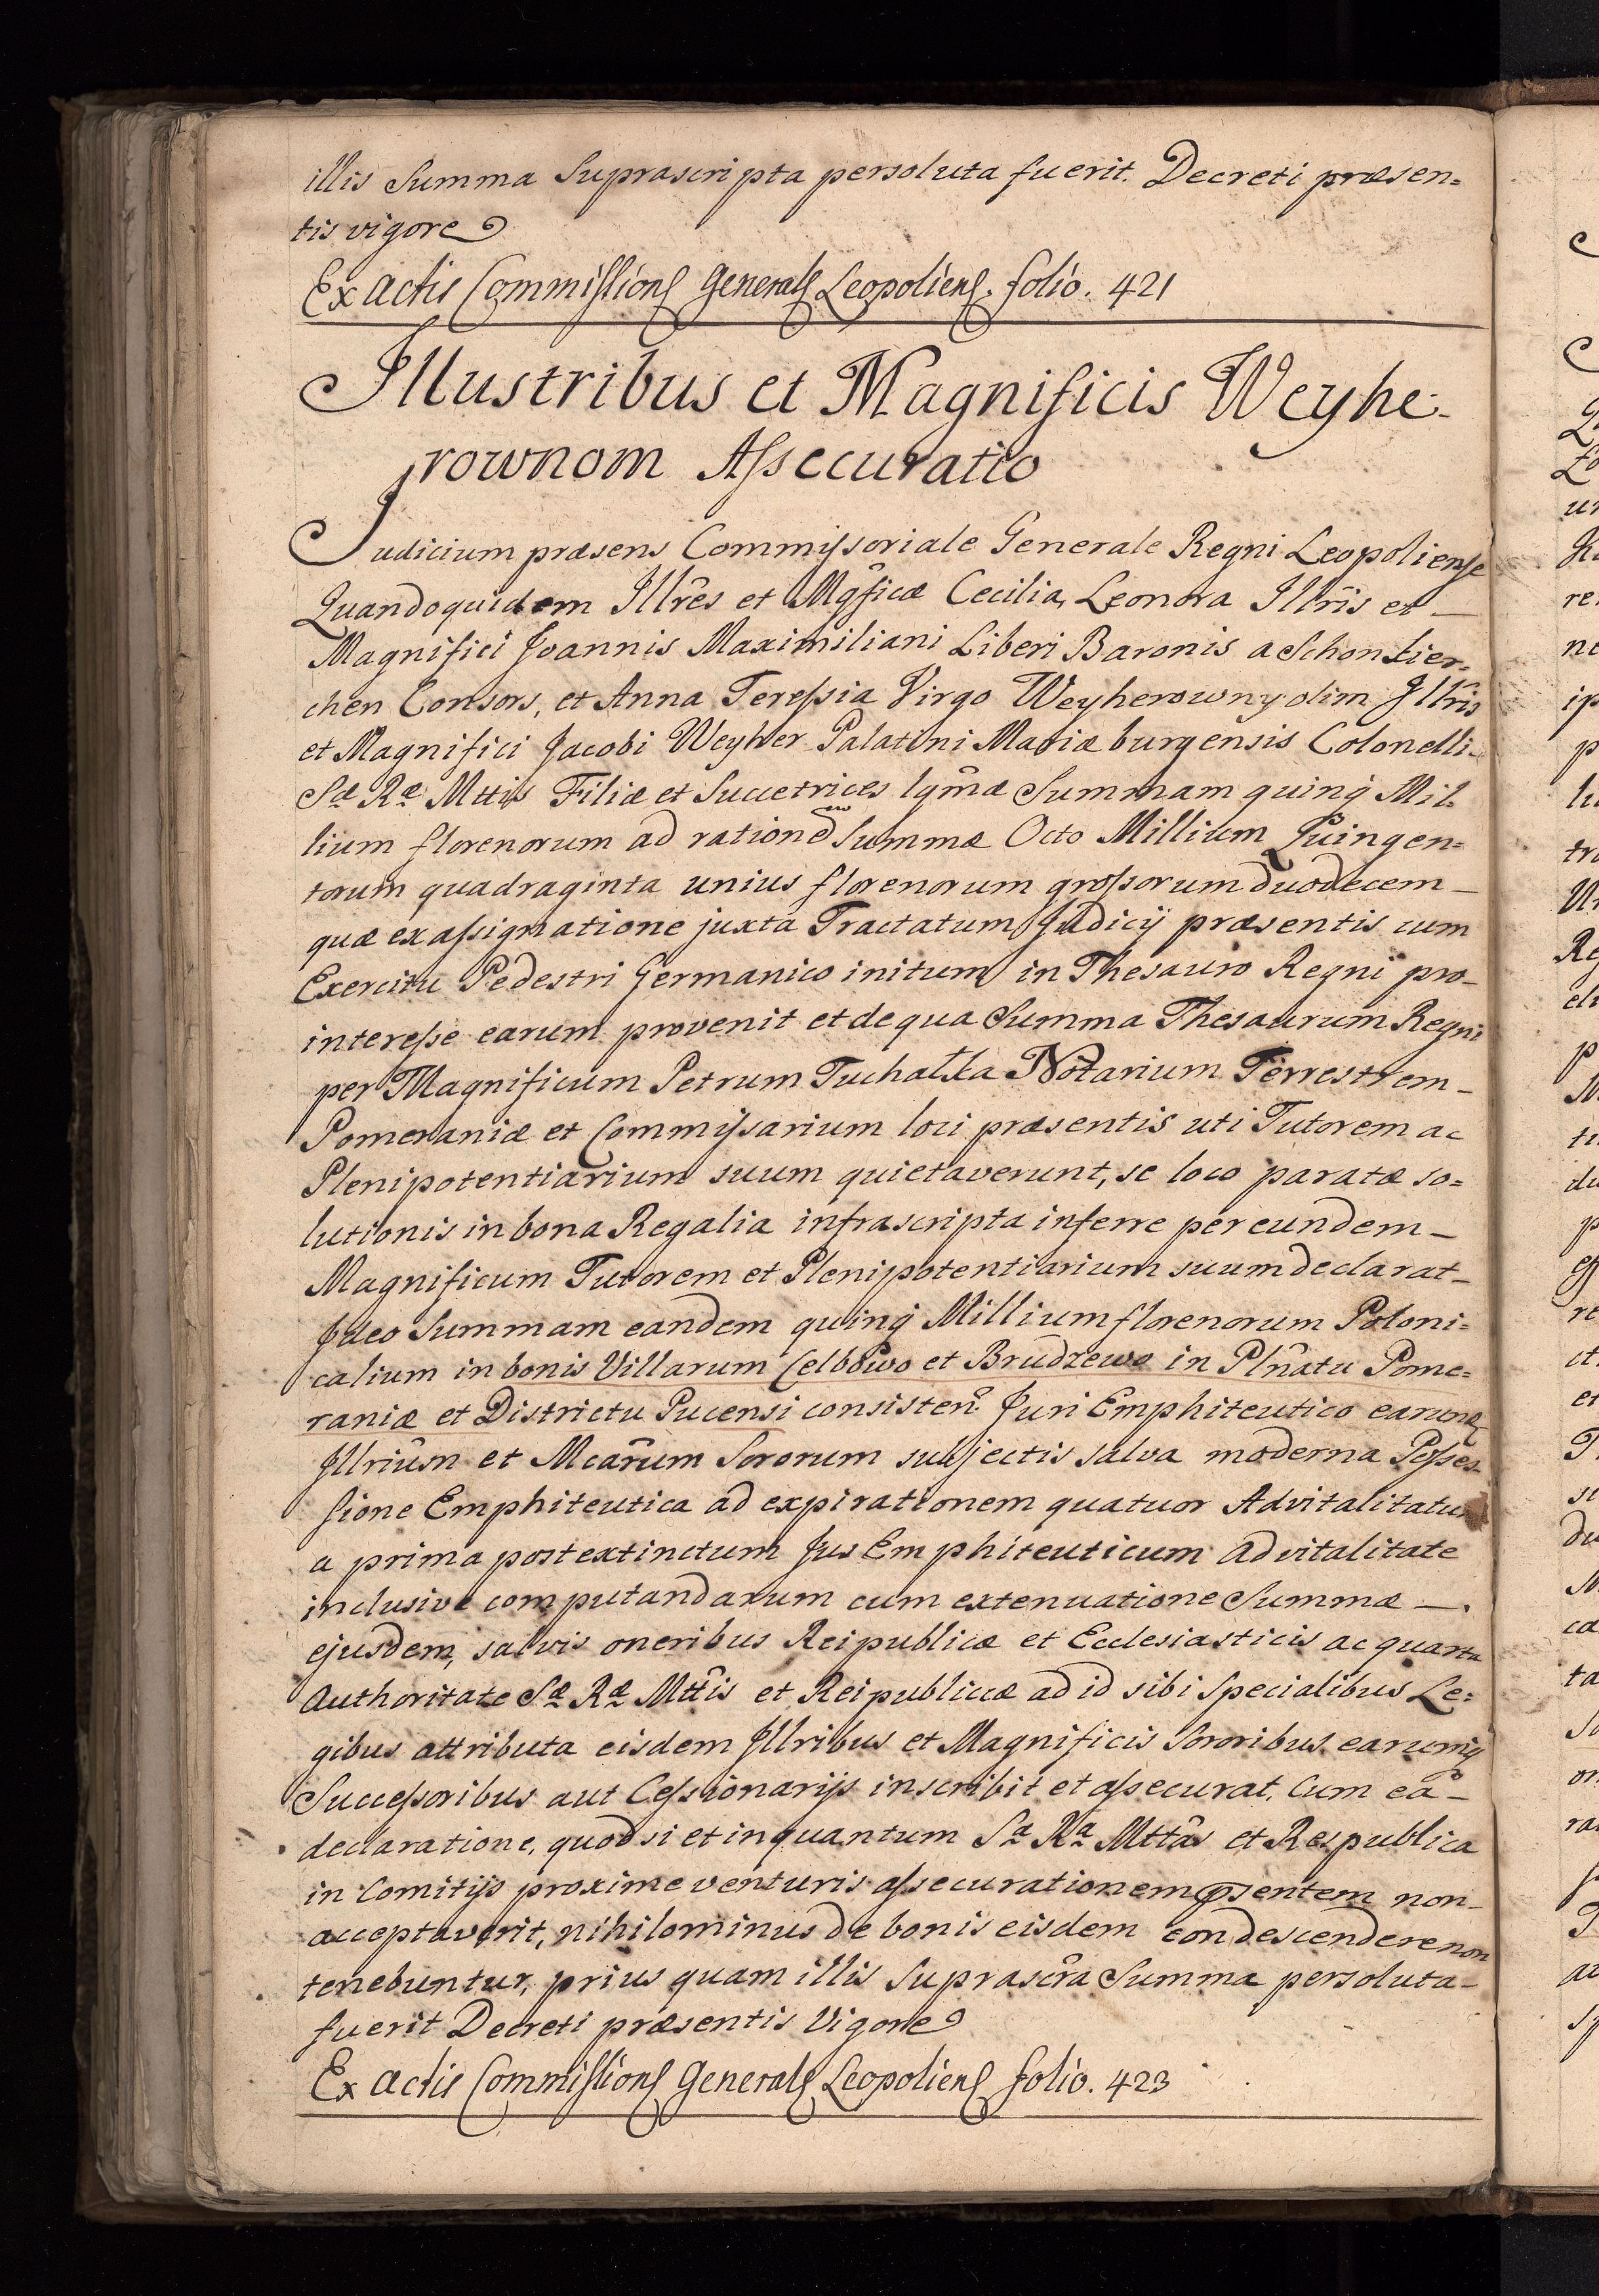 illis Summa Suprascripta persoluta fuerit. Decreti præsen=
tis vigore
Ex actis Commissions Generals Leopoliens. folio. 421
Illustribus et Magnificis Weyhe-
rownom Assecuratio
Judicium præsens Commissoriale Generale Regni Leopoliense
Quandoquidem Illres et Mgficæ Cecilia, Leonora Illris et
Magnifici Joannis Maximiliani Liberi Baronis a Schonlier=
chen Consors, et Anna Teressia Virgo Weyherowny olim Illris
et Magnifici Jacobi Weyher Palatini Mariæburgensis Colonelli
Sæ Ræ Mttis Filiæ et Succetrices lgmæ Summam quinq Mil=
lium florenorum ad rationem Summæ Octo Millium Quingen=
torum quadraginta unius florenorum grossorum duodecem
quæ ex assignatione juxta Tractatum Judicij præsentis cum
Exercitu Pedestri Germanico initum in Thesauro Regni pro
interesse earum provenit et de qua Summa Thesaurum Regni
per Magnificum Petrum Tuchałka Notarium Terrestrem
Pomeraniæ et Commissarium loci præsentis uti Tutorem ac
Plenipotentiarium suum quietaverunt, se loco paratæ so=
lutionis in bona Regalia infrascripta inferre per eundem
Magnificum Tutorem et Plenipotentiarium suum declarat
Ideo Summam eandem quinq Millium florenorum Poloni=
calium in bonis Villarum Celbowo et Brudzewo in Plnatu Pome=
raniæ et Districtu Pucensi consisten. Juri Emphiteutico earunq
Illrium et Mcarum Sororum subjectis salva moderna Posses=
sione Emphiteutica ad expirationem quatuor Advitalitatum
a prima post extinctum Jus Emphiteuticum advitalitate
inclusive computandarum cum extenuatione Summæ
ejusdem, salvis oneribus Reipublicæ et Ecclesiasticis ac quarta
Authoritate Sæ Ræ Mttis et Reipublicæ ad id sibi Specialibus Le=
gibus attributa eisdem Illribus et Magnificis Sororibus earumq
Successoribus aut Cessionarijs inscribit et assecurat. Cum ea
declaratione, quod si et in quantum Sa Ra Mttas et Respublica
in Comitijs proxime venturis assecurationem psentem non
acceptaverit, nihilominus de bonis eisdem condescendere non
tenebuntur, prius quam illis Suprascra Summa persoluta
fuerit Decreti præsentis Vigore
Ex actis Commissions Generals Leopoliens folio. 423